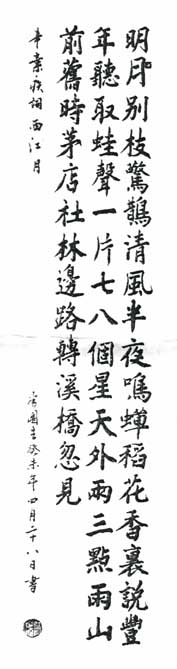 明月别枝驚鵲清風半夜鳴蟬稻花香裏說豐
年聽取蛙聲一片七八個星天外兩三點雨山
前舊時茅店社林邊路轉溪橋忽見
辛棄疾詞西江月
癸未年四月二十八日書